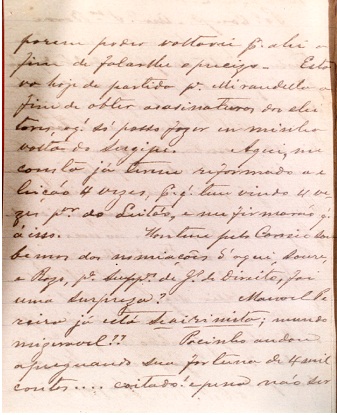 porem poderá voltarei q. ahi a
fim de falarlhe o preciso. Esta
va hoje de partida pa. Mirandella a
fim de obter assinaturas dos elei
tores, q. só posso fazer em minha
volta do Sergipe. Aqui, me
consta já terem reformado a e
leição 4 vezes, q. já tem vindo 4 ve
zes pr. do Leitão, e me firmarão q.
é isso. Hontem pelo Correio sou
bemos das nomiações d'aqui, Soure,
e Roza, pa. suppes. de Js. de Direito, foi
uma surpreza? Manoel Pe
reira já está Seairinista; mundo
miseravel!! Pacinho andou
apregoando sua fortuna de 4 mil
contos.... coitado! é pena não ser